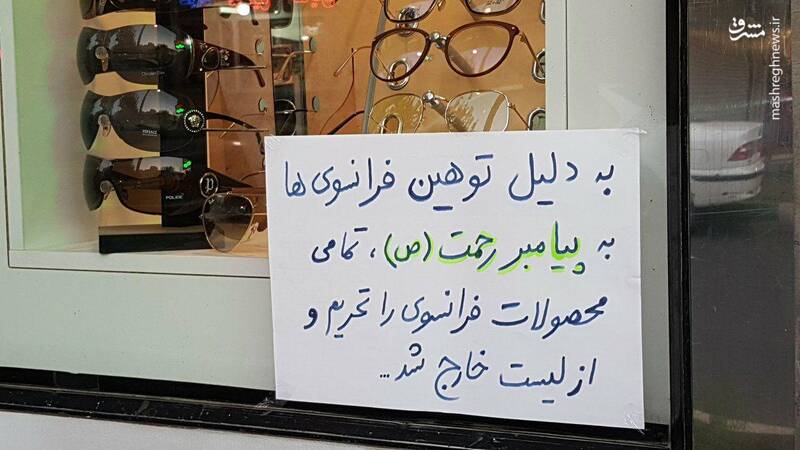 به دلیل توهین فرانسوی ها
به پیامبر رحمت (ص)، تمامی
محصولات فرانسوی را تحریم و
از لیست خارج شد...
POLICE
مشرق
mashreghnews.ir